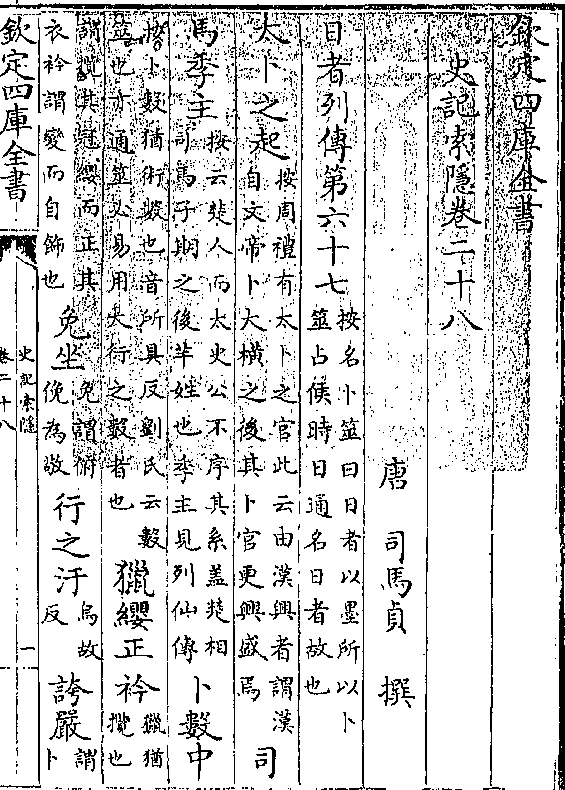 欽定四庫全書
史記索隱卷二十八
唐 司馬貞 撰
日者列傳第六十七 按名卜筮曰日者以墨所以卜筮占候時日通名日者故也
太卜之起 按周禮有太卜之官此云由漢興者謂漢自文帝卜大橫之後其卜官更興盛焉 司
馬季主 按云楚人而太史公不序其系蓋楚相司馬子期之後芊姓也季主見列仙傳 卜數中
按卜數猶術數也音所具反劉氏云數筮也亦通筮必易用大衍之數者也 獵纓正衿 獵猶攬也
謂攬其冠纓而正其衣衿謂變而自飾也 免坐 免謂俯俛為敬 行之汙 烏故反 誇嚴 謂卜
欽定四庫全書
史記索隱
卷二十八
一